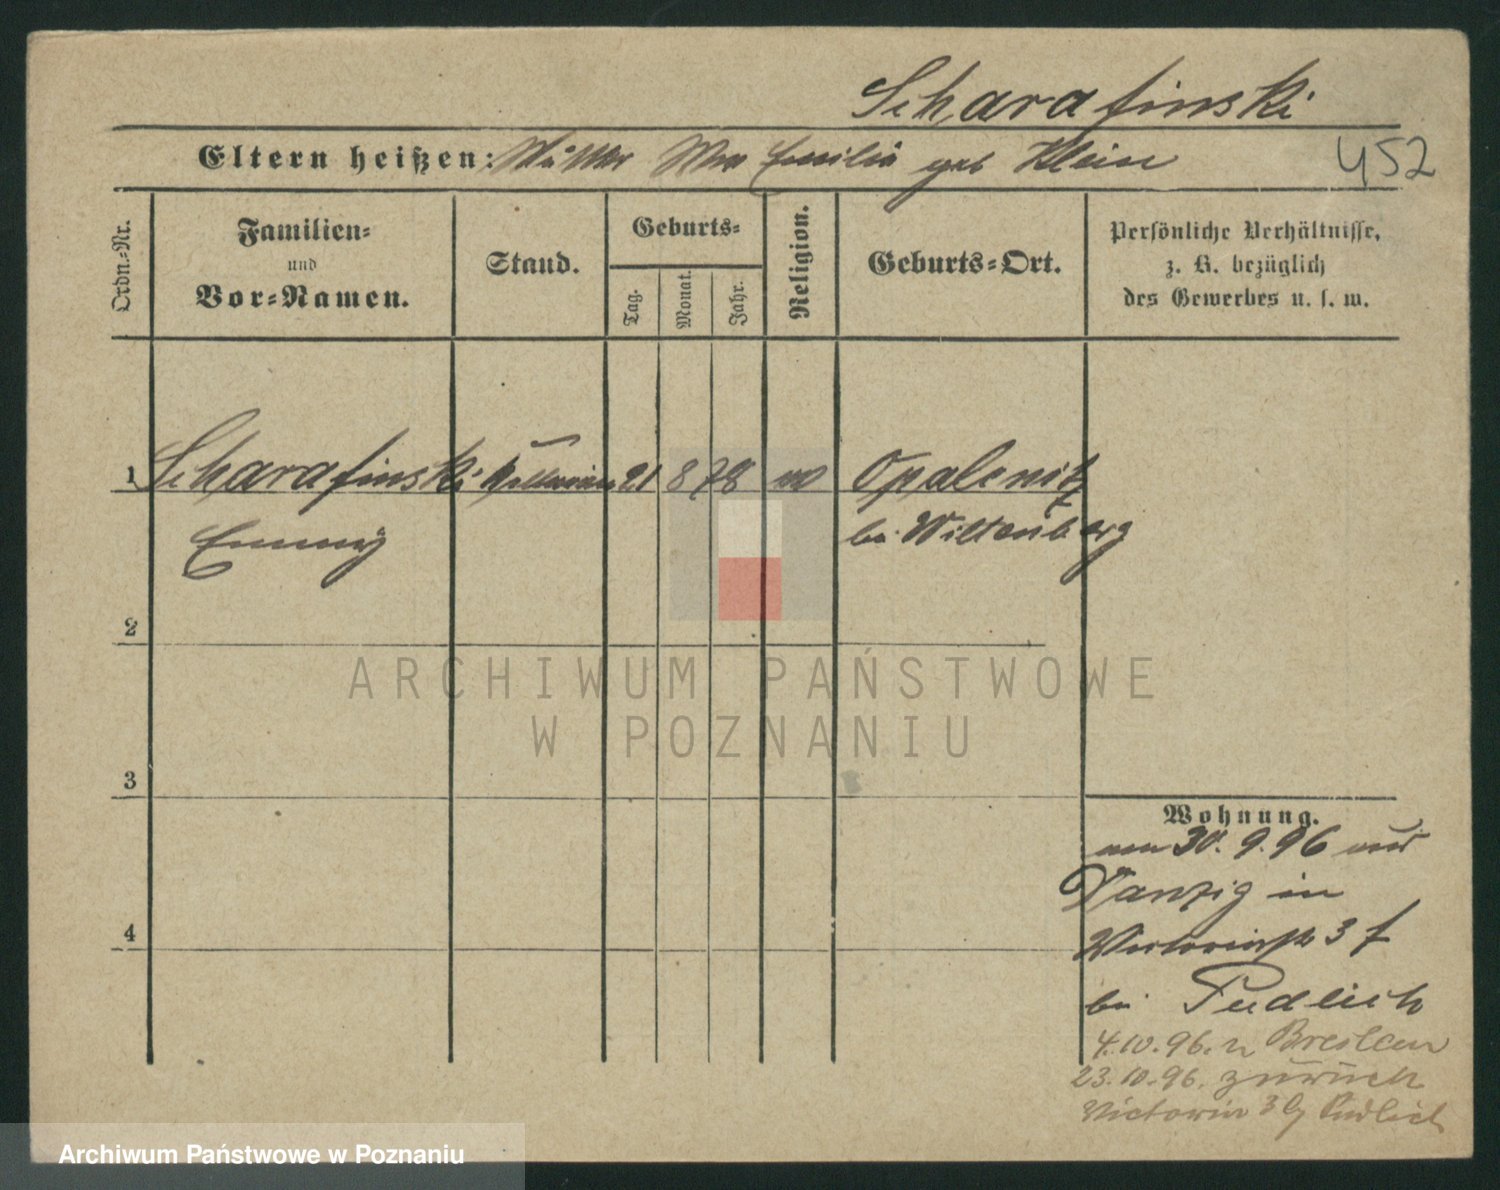 Scharafinski
Eltern heißen: Mutter Wwe Emilie geb Klein
452
Ordn.-Nr.
Familien-
und
Vor-Namen.
Stand.
Geburts-
Tag.
Monat.
Jahr.
Religion.
Geburts-Ort.
Persönliche Verhältnisse,
z. B. bezüglich
des Gewerbes u. s. w.
1 Scharafinski Kellnerin 21 8 78 Opalenitz
Emmy bei Wittenberg
2
3
4
Wohnung.
30. 9. 96 aus
Danzig in
Victoriastr 3
bei Pudlich
4.10.96. n Breslau
23.10.96. zurück
Victoria 3 Pudlich
ARCHIWUM PAŃSTWOWE
W POZNANIU
Archiwum Państwowe w Poznaniu